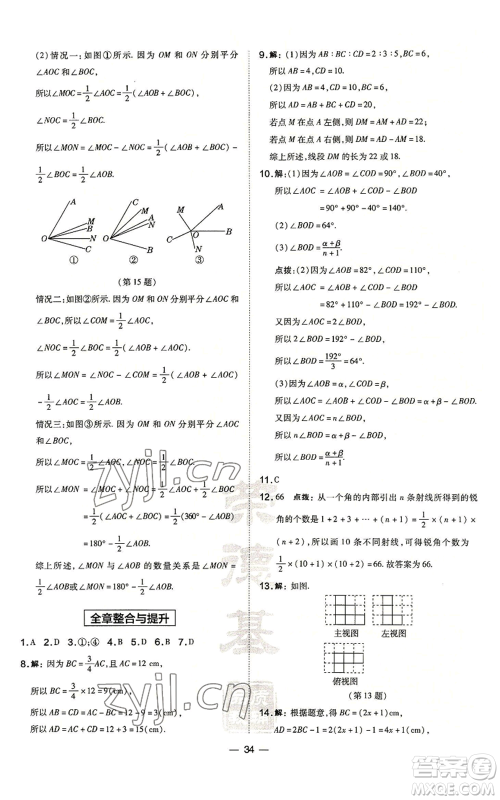 (2)情况一:如图①所示. 因为 OM 和 ON 分别平分
∠AOC 和 ∠BOC,
所以∠MOC = 1/2∠AOC,
∠NOC = 1/2∠BOC.
所以∠MON = ∠MOC - ∠NOC = 1/2(∠AOB + ∠BOC)
- 1/2∠BOC = 1/2∠AOB.
A
M
B
N
C
O
①
C
A
M
N
B
O
②
A
M
B
C
O
N
③
(第 15 题)
情况二:如图②所示. 因为 OM 和 ON 分别平分∠AOC
和∠BOC,
所以∠MOC = 1/2∠AOC, ∠NOC = 1/2∠BOC.
所以∠MON = ∠NOC - ∠MOC = 1/2(∠AOB + ∠AOC)
- 1/2∠AOC = 1/2∠AOB.
情况三:如图③所示. 因为 OM 和 ON 分别平分∠AOC
和∠BOC,
所以∠MOC = 1/2∠AOC, ∠NOC = 1/2∠BOC.
所以∠MON = ∠MOC + ∠NOC = 1/2(∠AOC + ∠BOC)
= 180° - 1/2∠AOB.
综上所述, ∠MON 与∠AOB 的数量关系是∠MON =
1/2∠AOB 或∠MON = 180° - 1/2∠AOB.
全章整合与提升
1. A 2. D 3. ①;④ 4. D 5. B 6. B 7. D
8. 解:(1)因为 BC = 3/4AC = 且 AC = 12 cm,
所以 BC = 3/4 × 12 = 9(cm).
所以 AD = CD = AC = 12 - 9 = 3(cm).
(2)由(1)知 BC = 9 cm,
所以 CD = 3/4 × (12 + 3) = 3(cm).
所以 AD = AC + CD = 12 + 3 = 15(cm).
9. 解:(1)因为 AB : BC : CD = 2 : 3 : 5, BC = 6,
所以 AB = 4, CD = 10.
(2)因为 AB = 4, CD = 10, BC = 6,
所以 AD = AB + BC + CD = 20.
若点 M 在点 A 左侧, 则 DM = AM + AD = 22.
若点 M 在点 A 右侧, 则 DM = AD - AM = 18.
综上所述, 线段 DM 的长为 22 或 18.
10. 解:(1)因为∠AOB = ∠COD = 90°, ∠AOC = 46°,
所以∠BOD = ∠AOB + ∠COD - ∠AOC
= 90° + 90° - 46°
= 134°.
(2)∠BOD = 64°.
(3)∠BOD = (α + β)/(n + 1).
点拨:(2)因为∠AOB = 82°, ∠COD = 110°,
所以∠AOC = ∠AOB + ∠COD - ∠BOD
= 82° + 110° - ∠BOD
= 192° - ∠BOD.
又因为∠AOC = 2∠BOD,
所以 2∠BOD = 192° - ∠BOD.
所以∠BOD = 192°/3 = 64°.
(3)因为∠AOB = α, ∠COD = β,
所以∠AOC = ∠AOB + ∠COD - ∠BOD = α + β - ∠BOD.
又因为∠AOC = n∠BOD,
所以 n∠BOD = α + β - ∠BOD.
所以∠BOD = (α + β)/(n + 1).
11. C
12. 66 点拨:从一个角的内部引出 n 条射线所得到的锐
角的个数为 1 + 2 + 3 + … + (n + 1) = 1/2(n + 1)×
(n + 2), 所以画 10 条不同射线, 可得锐角的个数为
1/2 × (10 + 1) × (10 + 2) = 66. 故答案为 66.
13. 解:如图.
主视图
左视图
俯视图
(第 13 题)
14. 解:根据题意, 可知 BC = (2x + 1)cm,
所以 AD = AB + BC + CD = x + (2x + 1) +
34
zyji.cn
荣德基